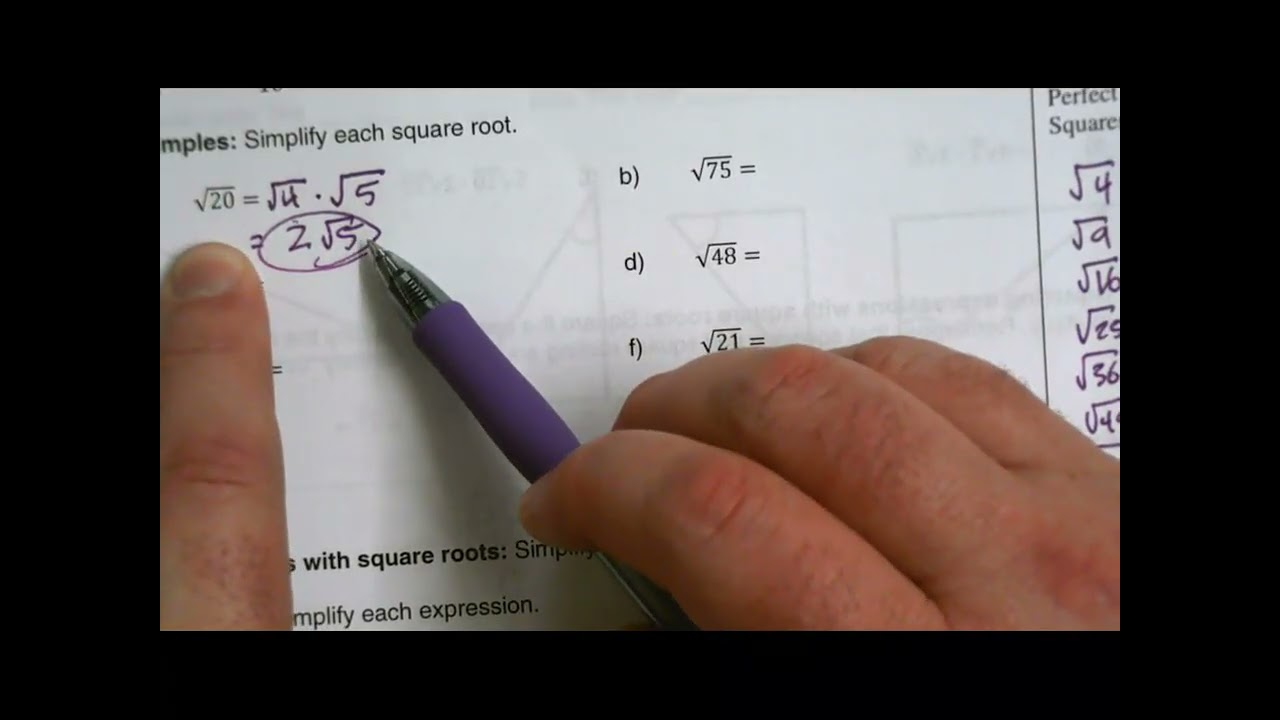 mples: Simplify each square root.
√20 = √4 · √5
= 2√5
b) √75 =
d) √48 =
f) √21 =
=
s with square roots:
mplify each expression.
Perfect
Square
√4
√9
√16
√25
√36